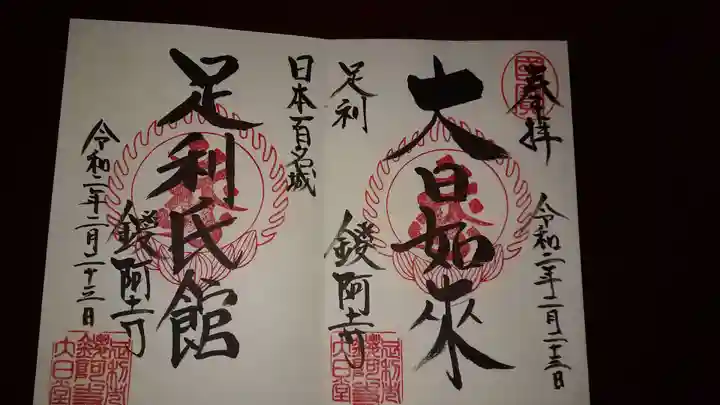 奉拝
令和二年二月二十三日
大日如来
足利
鑁阿寺
日本百名城
足利氏館
鑁阿寺
令和二年二月二十三日
足利
鑁阿寺
大日堂